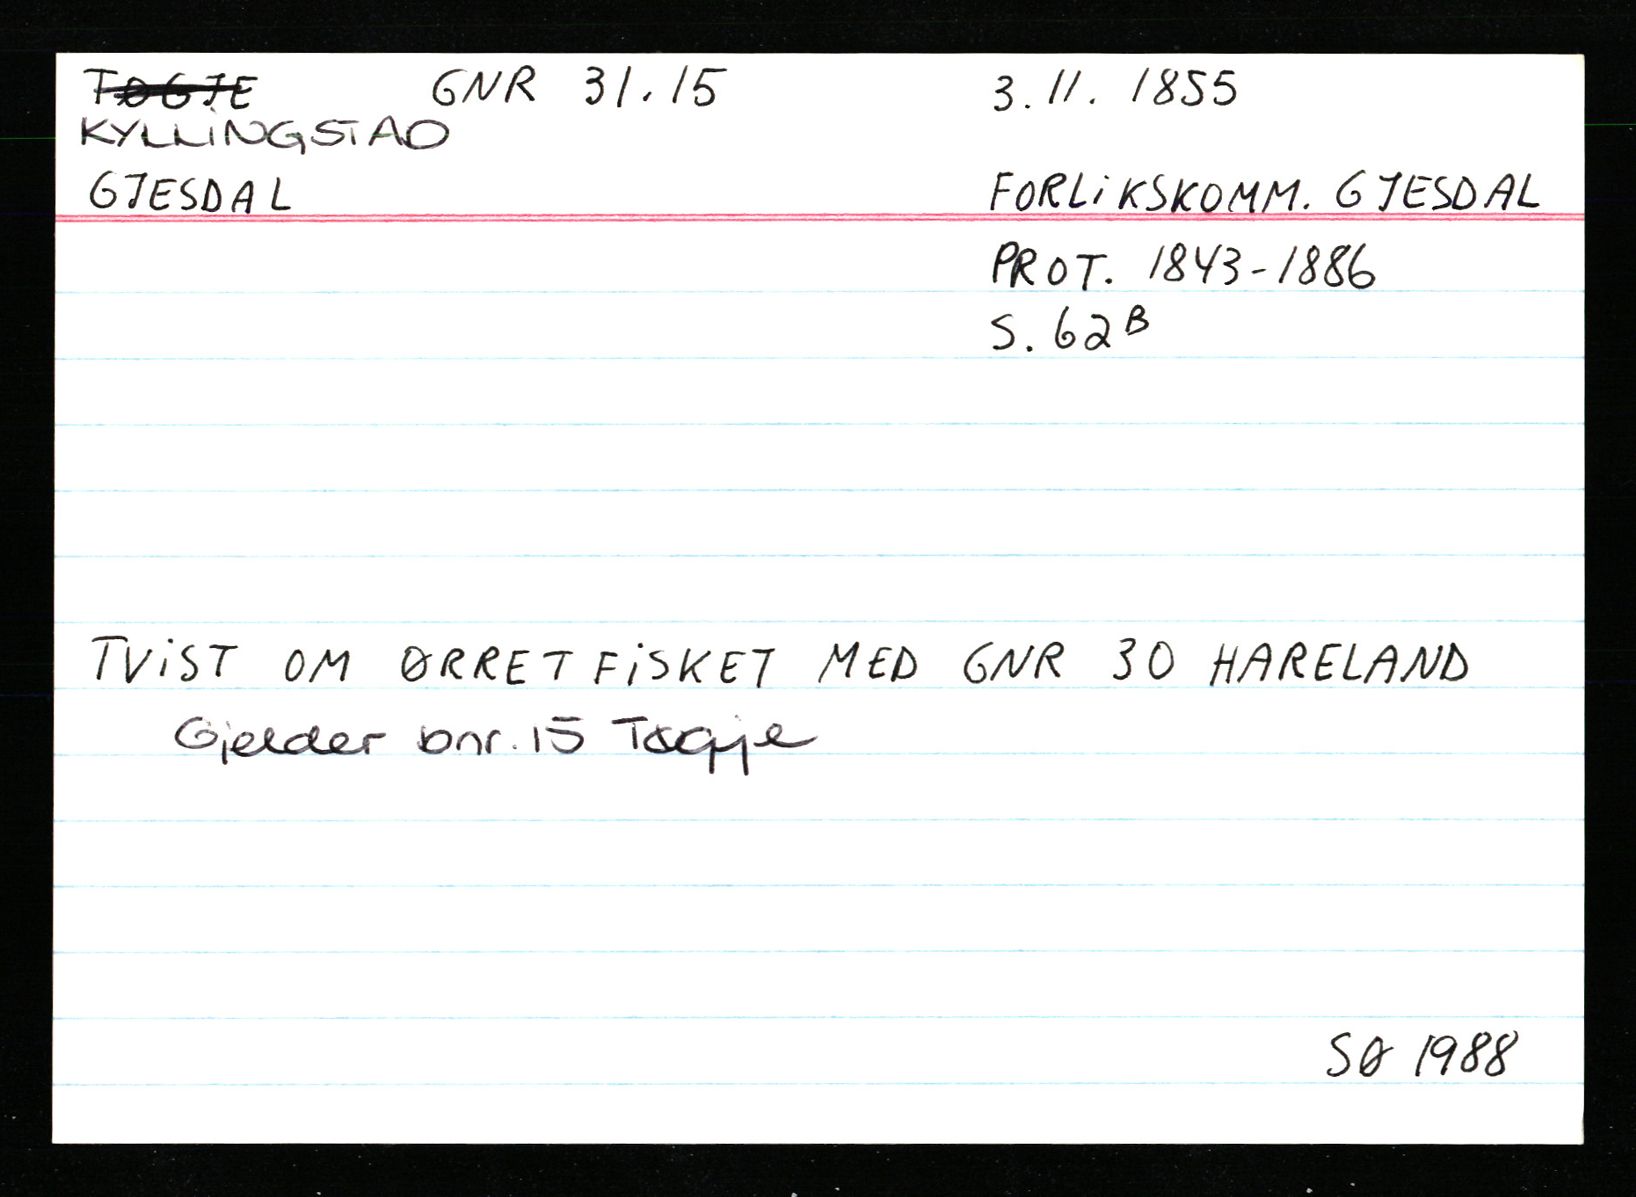 TØGJE GNR 31.15 3.11.1855
KYLLINGSTAD
GJESDAL FORLIKSKOMM. GJESDAL
PROT. 1843-1886
S. 62 B
TVIST OM ØRRETFISKET MED GNR 30 HARELAND
Gjelder bnr. 15 Tøgje
SØ 1988